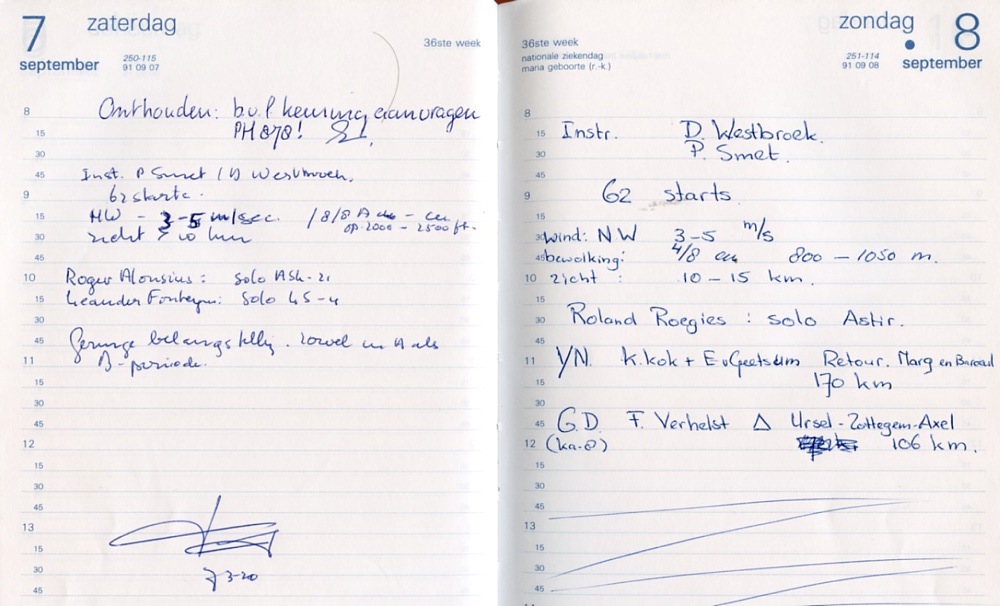 7 zaterdag
september
250-115
91 09 07
36ste week
8 Onthouden: b.v.l keuring aanvragen
15 PH 878!
30
45 Inst. P Smet / D Westbroek.
9 62 starts.
15 HW - 3-5 m/sec. /8/8 - cu
op 2000 - 2500 ft.
30 zicht > 10 km
45
10 Roger Alousius: solo ASK-21
15 Leander Fonteyn: Solo LS-4
30
45 Geringe belangstelling. zowel in A als
11 B-periode.
15
30
45
12
15
30
45
13
15
30
45
zondag 8
september
36ste week
nationale ziekendag
maria geboorte (r.-k.)
251-114
91 09 08
8
15 Instr. D. Westbroek.
30 P. Smet.
45
9 62 starts.
15
30 wind: NW 3-5 m/s
45 bewolking: 4/8 cu 800 - 1050 m.
10 zicht : 10 - 15 km.
15
30 Roland Roegies : solo Astir.
45
11 YN. K.Kok + E v Geetsum Retour. Marg en Baroeul
15 170 km
30
45 G.D. F. Verhelst Δ Ursel - Zottegem - Axel
12 (ka-8) 106 km.
15
30
45
13
15
30
45